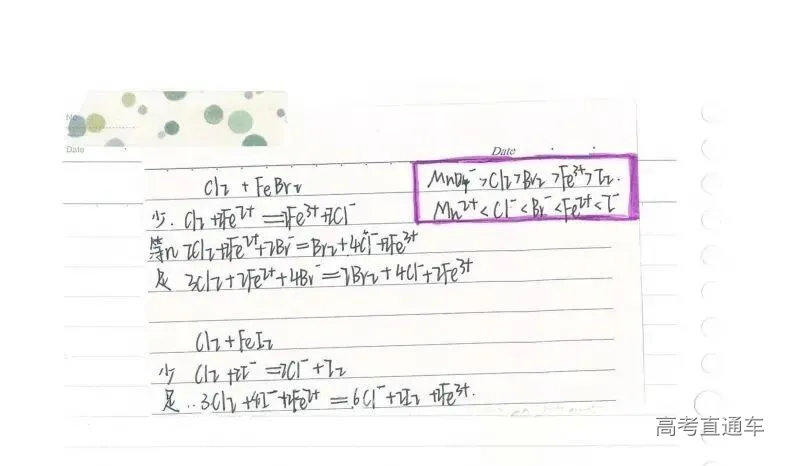 No
Date
Date
Cl₂ + FeBr₂
少. Cl₂ + 2Fe²⁺ = 2Fe³⁺ + 2Cl⁻
等n 2Cl₂ + 2Fe²⁺ + 2Br⁻ = Br₂ + 4Cl⁻ + 2Fe³⁺
足 3Cl₂ + 2Fe²⁺ + 4Br⁻ = 2Br₂ + 4Cl⁻ + 2Fe³⁺
MnO₄⁻ > Cl₂ > Br₂ > Fe³⁺ > I₂.
Mn²⁺ < Cl⁻ < Br⁻ < Fe²⁺ < I⁻
Cl₂ + FeI₂
少 Cl₂ + 2I⁻ = 2Cl⁻ + I₂
足.. 3Cl₂ + 4I⁻ + 2Fe²⁺ = 6Cl⁻ + 2I₂ + 2Fe³⁺.
高考直通车